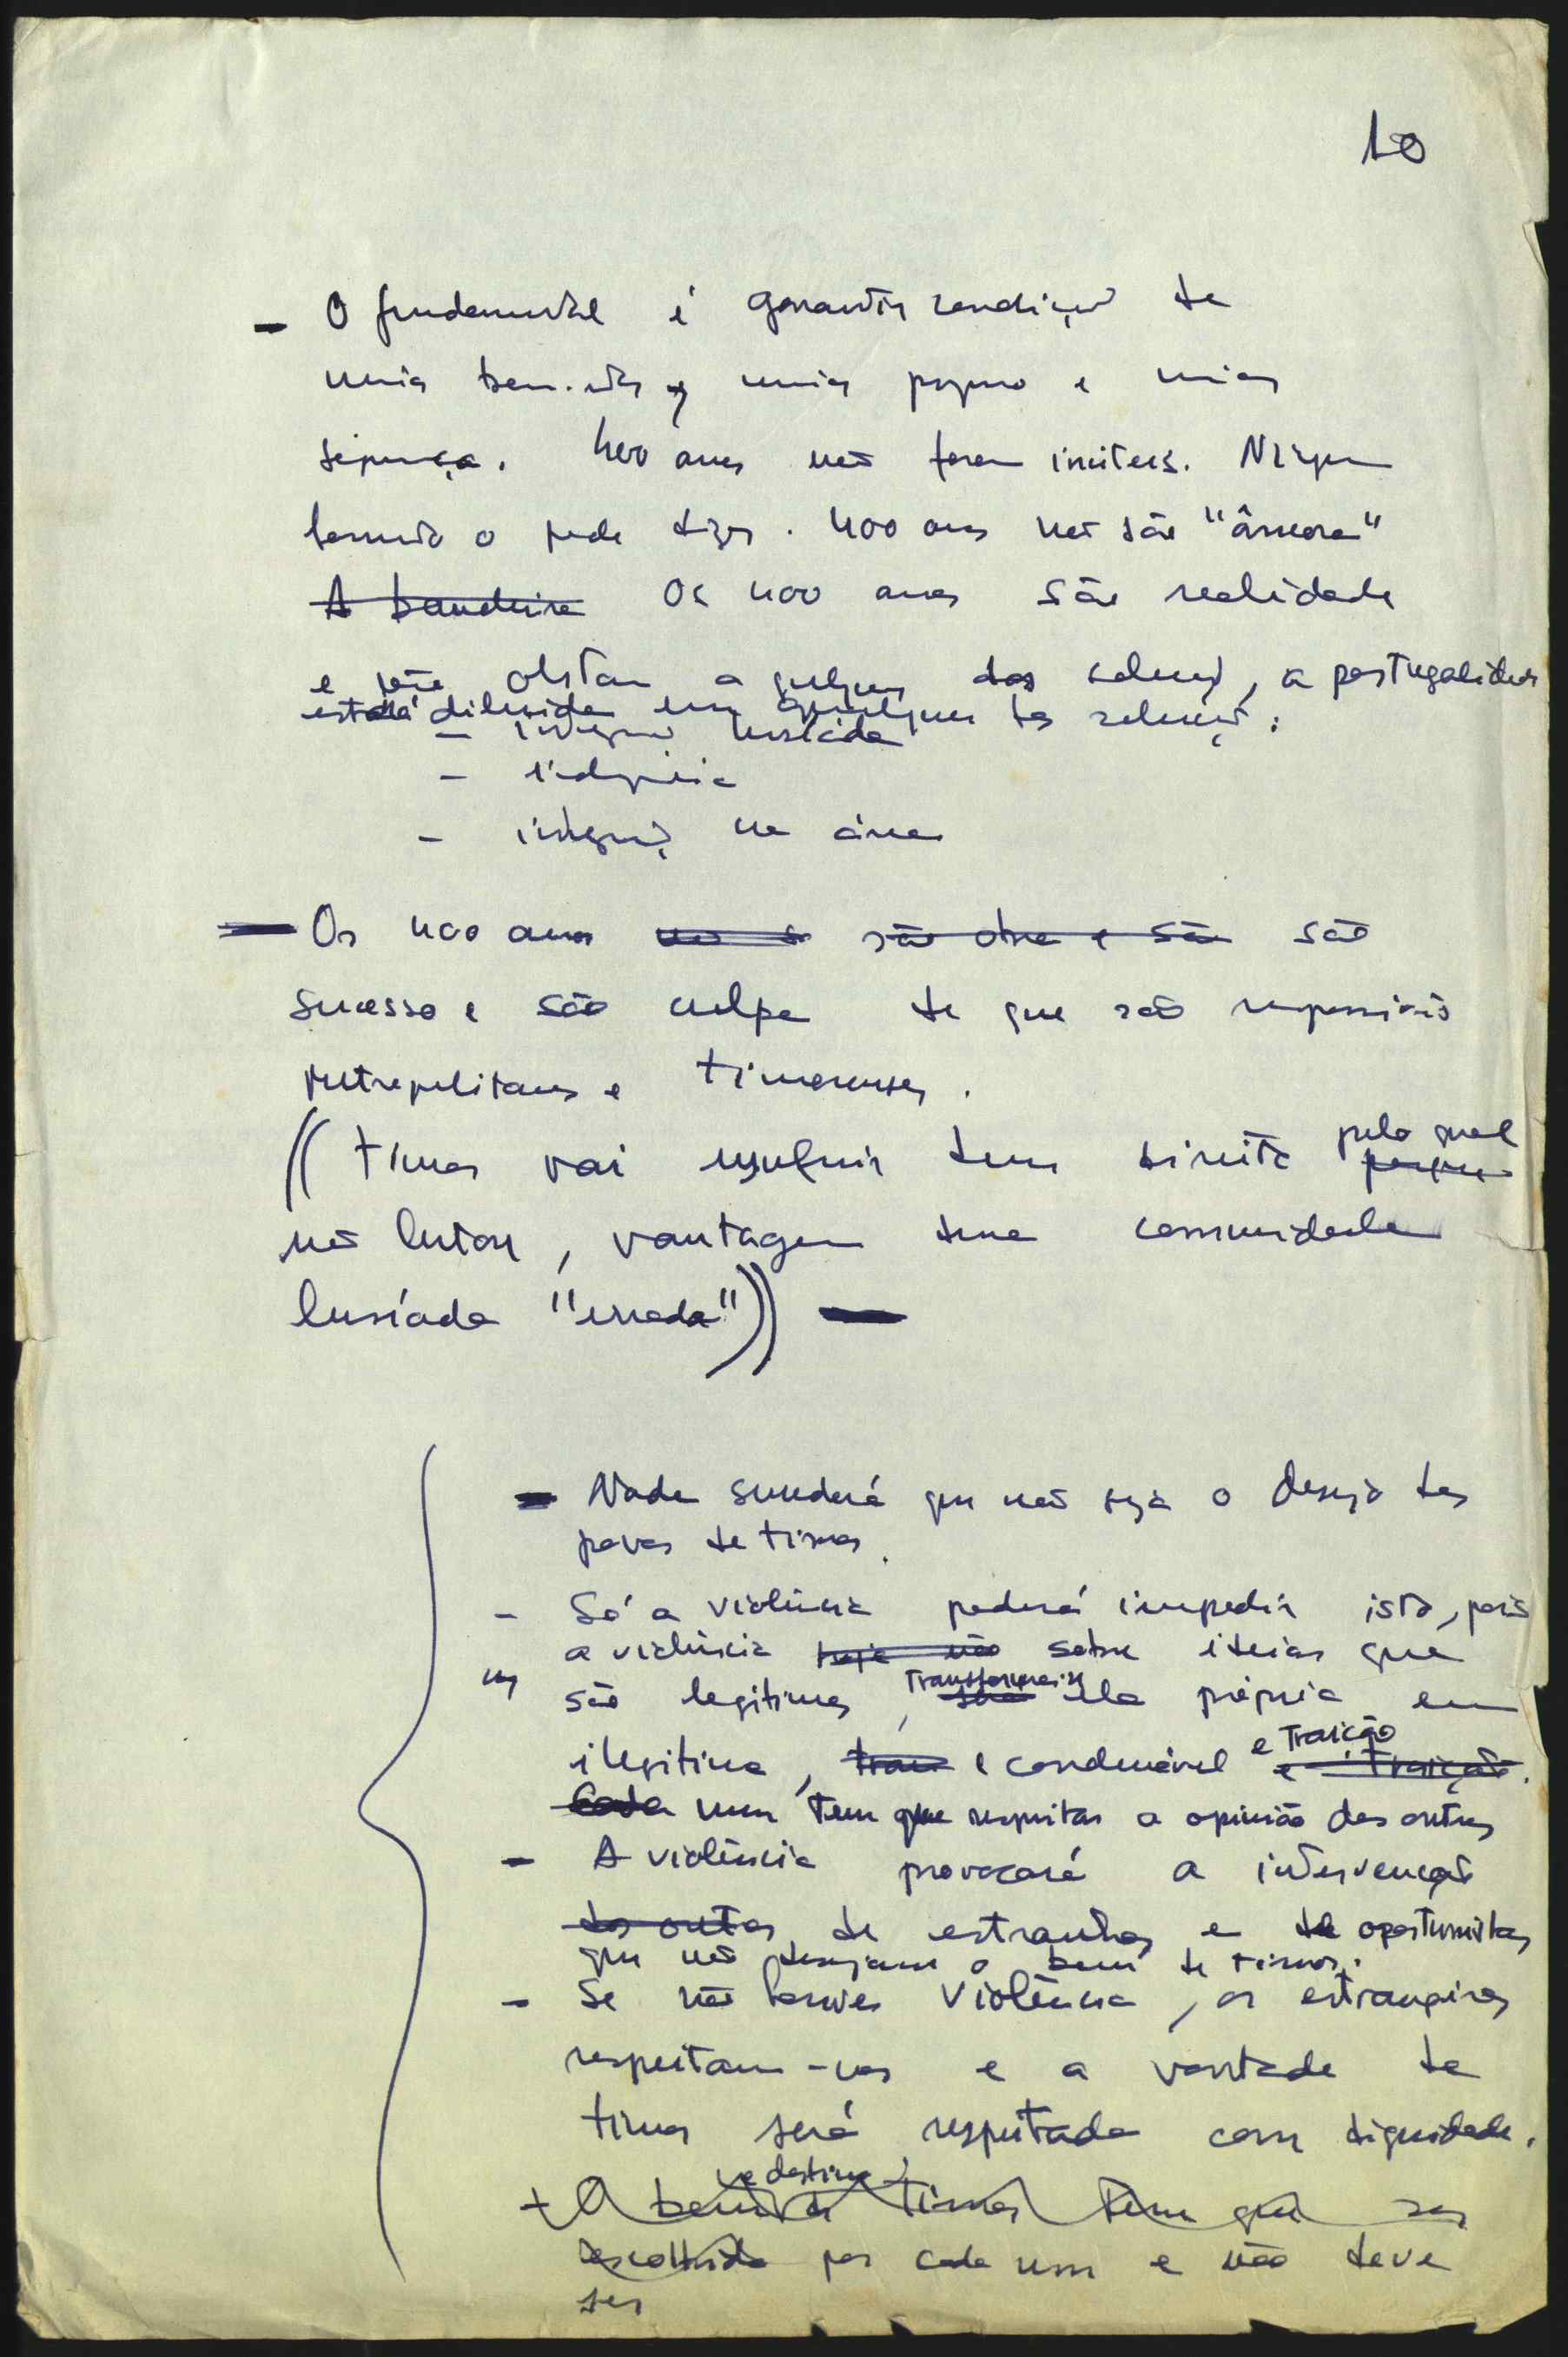 10
- O fundamental é garantir condições de
mais bem-estar, mais progresso e mais
segurança. 400 anos não foram inúteis. Ninguém
honesto o pode dizer. 400 anos não são "âncora"
A bandeira Os 400 anos são realidade
e não obstam a qualquer das soluções, a portugalidade
estará diluída em qualquer das soluções:
- integração lusíada
- independência
- integração na área
- Os 400 anos não s são obra e são são
sucesso e são culpa de que são responsáveis
metropolitanos e timorenses.
(( Timor vai usufruir dum direito pelo qual porque
não lutou, vantagem duma comunidade
lusíada "errada" )) -
- Nada sucederá que não seja o desejo dos
povos de Timor.
- Só a violência poderá impedir isto, pois
a violência hoje não sobre ideias que
são legítimas, transforma-se ela própria em
ilegítima, e condenável e traição e traição.
Cada um tem que respeitar a opinião dos outros
- A violência provocará a intervenção
dos outros de estranhos e de oportunistas
que não desejam o bem de Timor.
- Se não houver violência, os estrangeiros
respeitam-nos e a vontade de
Timor será respeitada com dignidade.
+ O destino Timor tem que ser
escolhido por cada um e não deve
ser